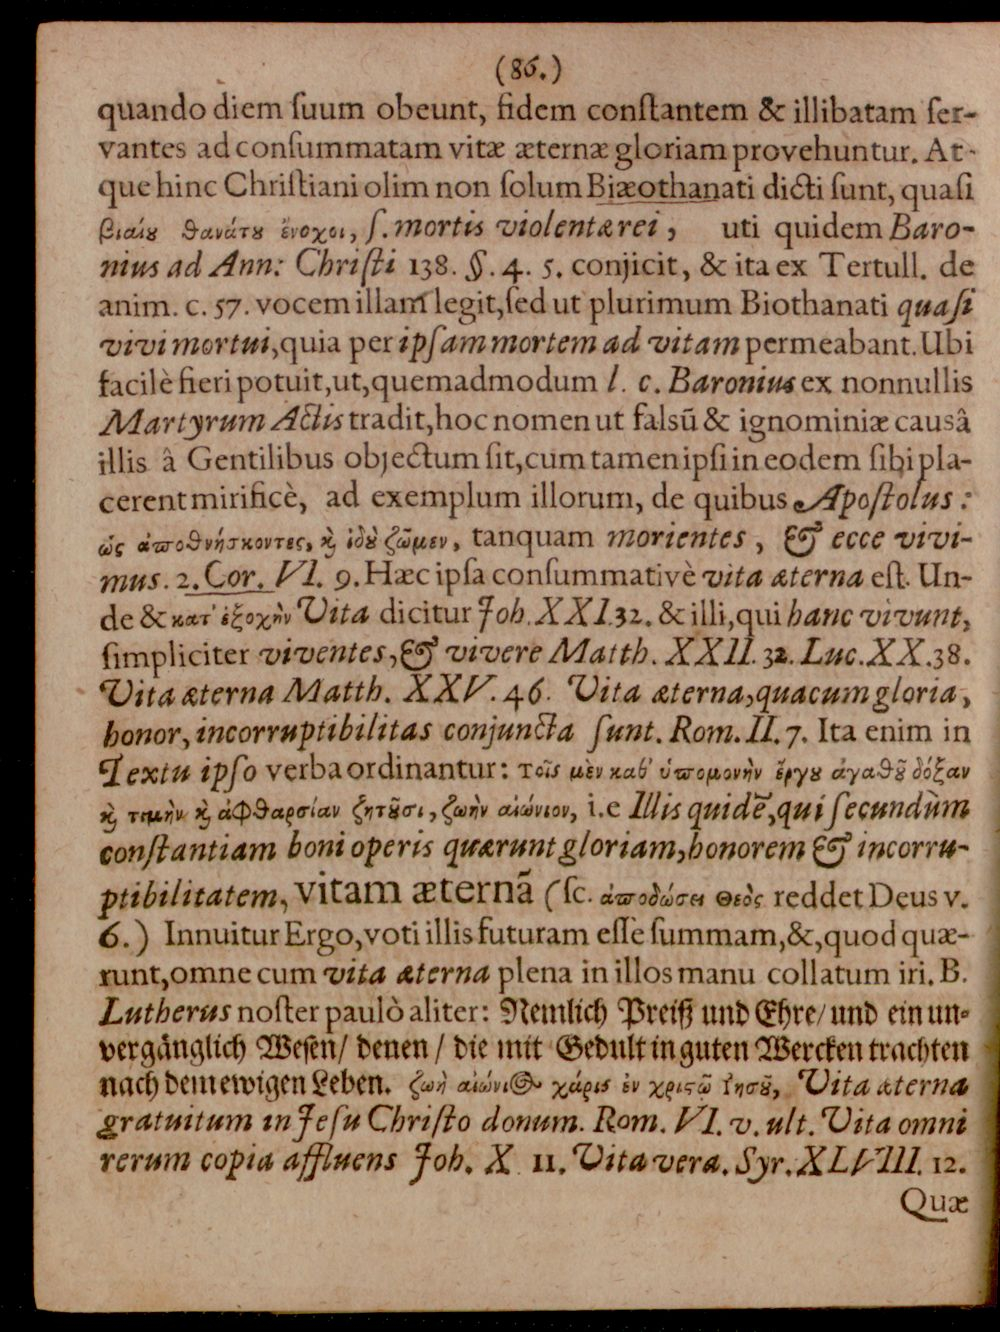 (86.)
quando diem ſuum obeunt, fidem conſtantem & illibatam ſer-
vantes ad conſummatam vitæ æternæ gloriam provehuntur. At-
que hinc Chriſtiani olim non ſolum Biæothanati dicti ſunt, quaſi
βιαίου θανάτου ἔνοχοι, ſ. mortis violentæ rei, uti quidem Baro-
nius ad Ann: Chriſti 138. §. 4. 5. conjicit, & ita ex Tertull. de
anim. c. 57. vocem illam legit, ſed ut plurimum Biothanati quaſi
vivi mortui, quia per ipſam mortem ad vitam permeabant. Ubi
facilè fieri potuit, ut, quemadmodum l. c. Baronius ex nonnullis
Martyrum Actis tradit, hoc nomen ut falsū & ignominiæ causâ
illis â Gentilibus objectum ſit, cum tamen ipſi in eodem ſibi pla-
cerent mirificè, ad exemplum illorum, de quibus Apoſtolus:
ὡς ἀποθνήσκοντες, ϗ ἰδοὺ ζῶμεν, tanquam morientes, & ecce vivi-
mus. 2. Cor. VI. 9. Hæc ipſa conſummativè vita æterna eſt. Un-
de & κατ' ἐξοχὴν Vita dicitur Joh. XXI.32. & illi, qui hanc vivunt,
ſimpliciter viventes, & vivere Matth. XXII. 32. Luc. XX.38.
Vita æterna Matth. XXV. 46. Vita æterna, quacum gloria,
honor, incorruptibilitas conjuncta ſunt. Rom. II. 7. Ita enim in
Textu ipſo verba ordinantur: τοῖς μὲν καθ' ὑπομονὴν ἔργου ἀγαθοῦ δόξαν
ϗ τιμὴν ϗ ἀφθαρσίαν ζητοῦσι, ζωὴν αἰώνιον, i.e Illis quidē, qui ſecundùm
conſtantiam boni operis quærunt gloriam, honorem & incorru-
ptibilitatem, vitam æternā (ſc. ἀποδώσει Θεὸς reddet Deus v.
6.) Innuitur Ergo, voti illis futuram eſſe ſummam, &, quod quæ-
runt, omne cum vita æterna plena in illos manu collatum iri. B.
Lutherus noſter paulò aliter: Nemlich Preiß und Ehre/ und ein un-
vergänglich Weſen/ denen/ die mit Gedult in guten Wercken trachten
nach dem ewigen Leben. ζωὴ αἰώνιος χάρις ἐν χριστῷ ἰησοῦ, Vita æterna
gratuitum in Jeſu Chriſto donum. Rom. VI. v. ult. Vita omni
rerum copia affluens Joh. X. 11. Vita vera. Syr. XLVIII. 12.
Quæ